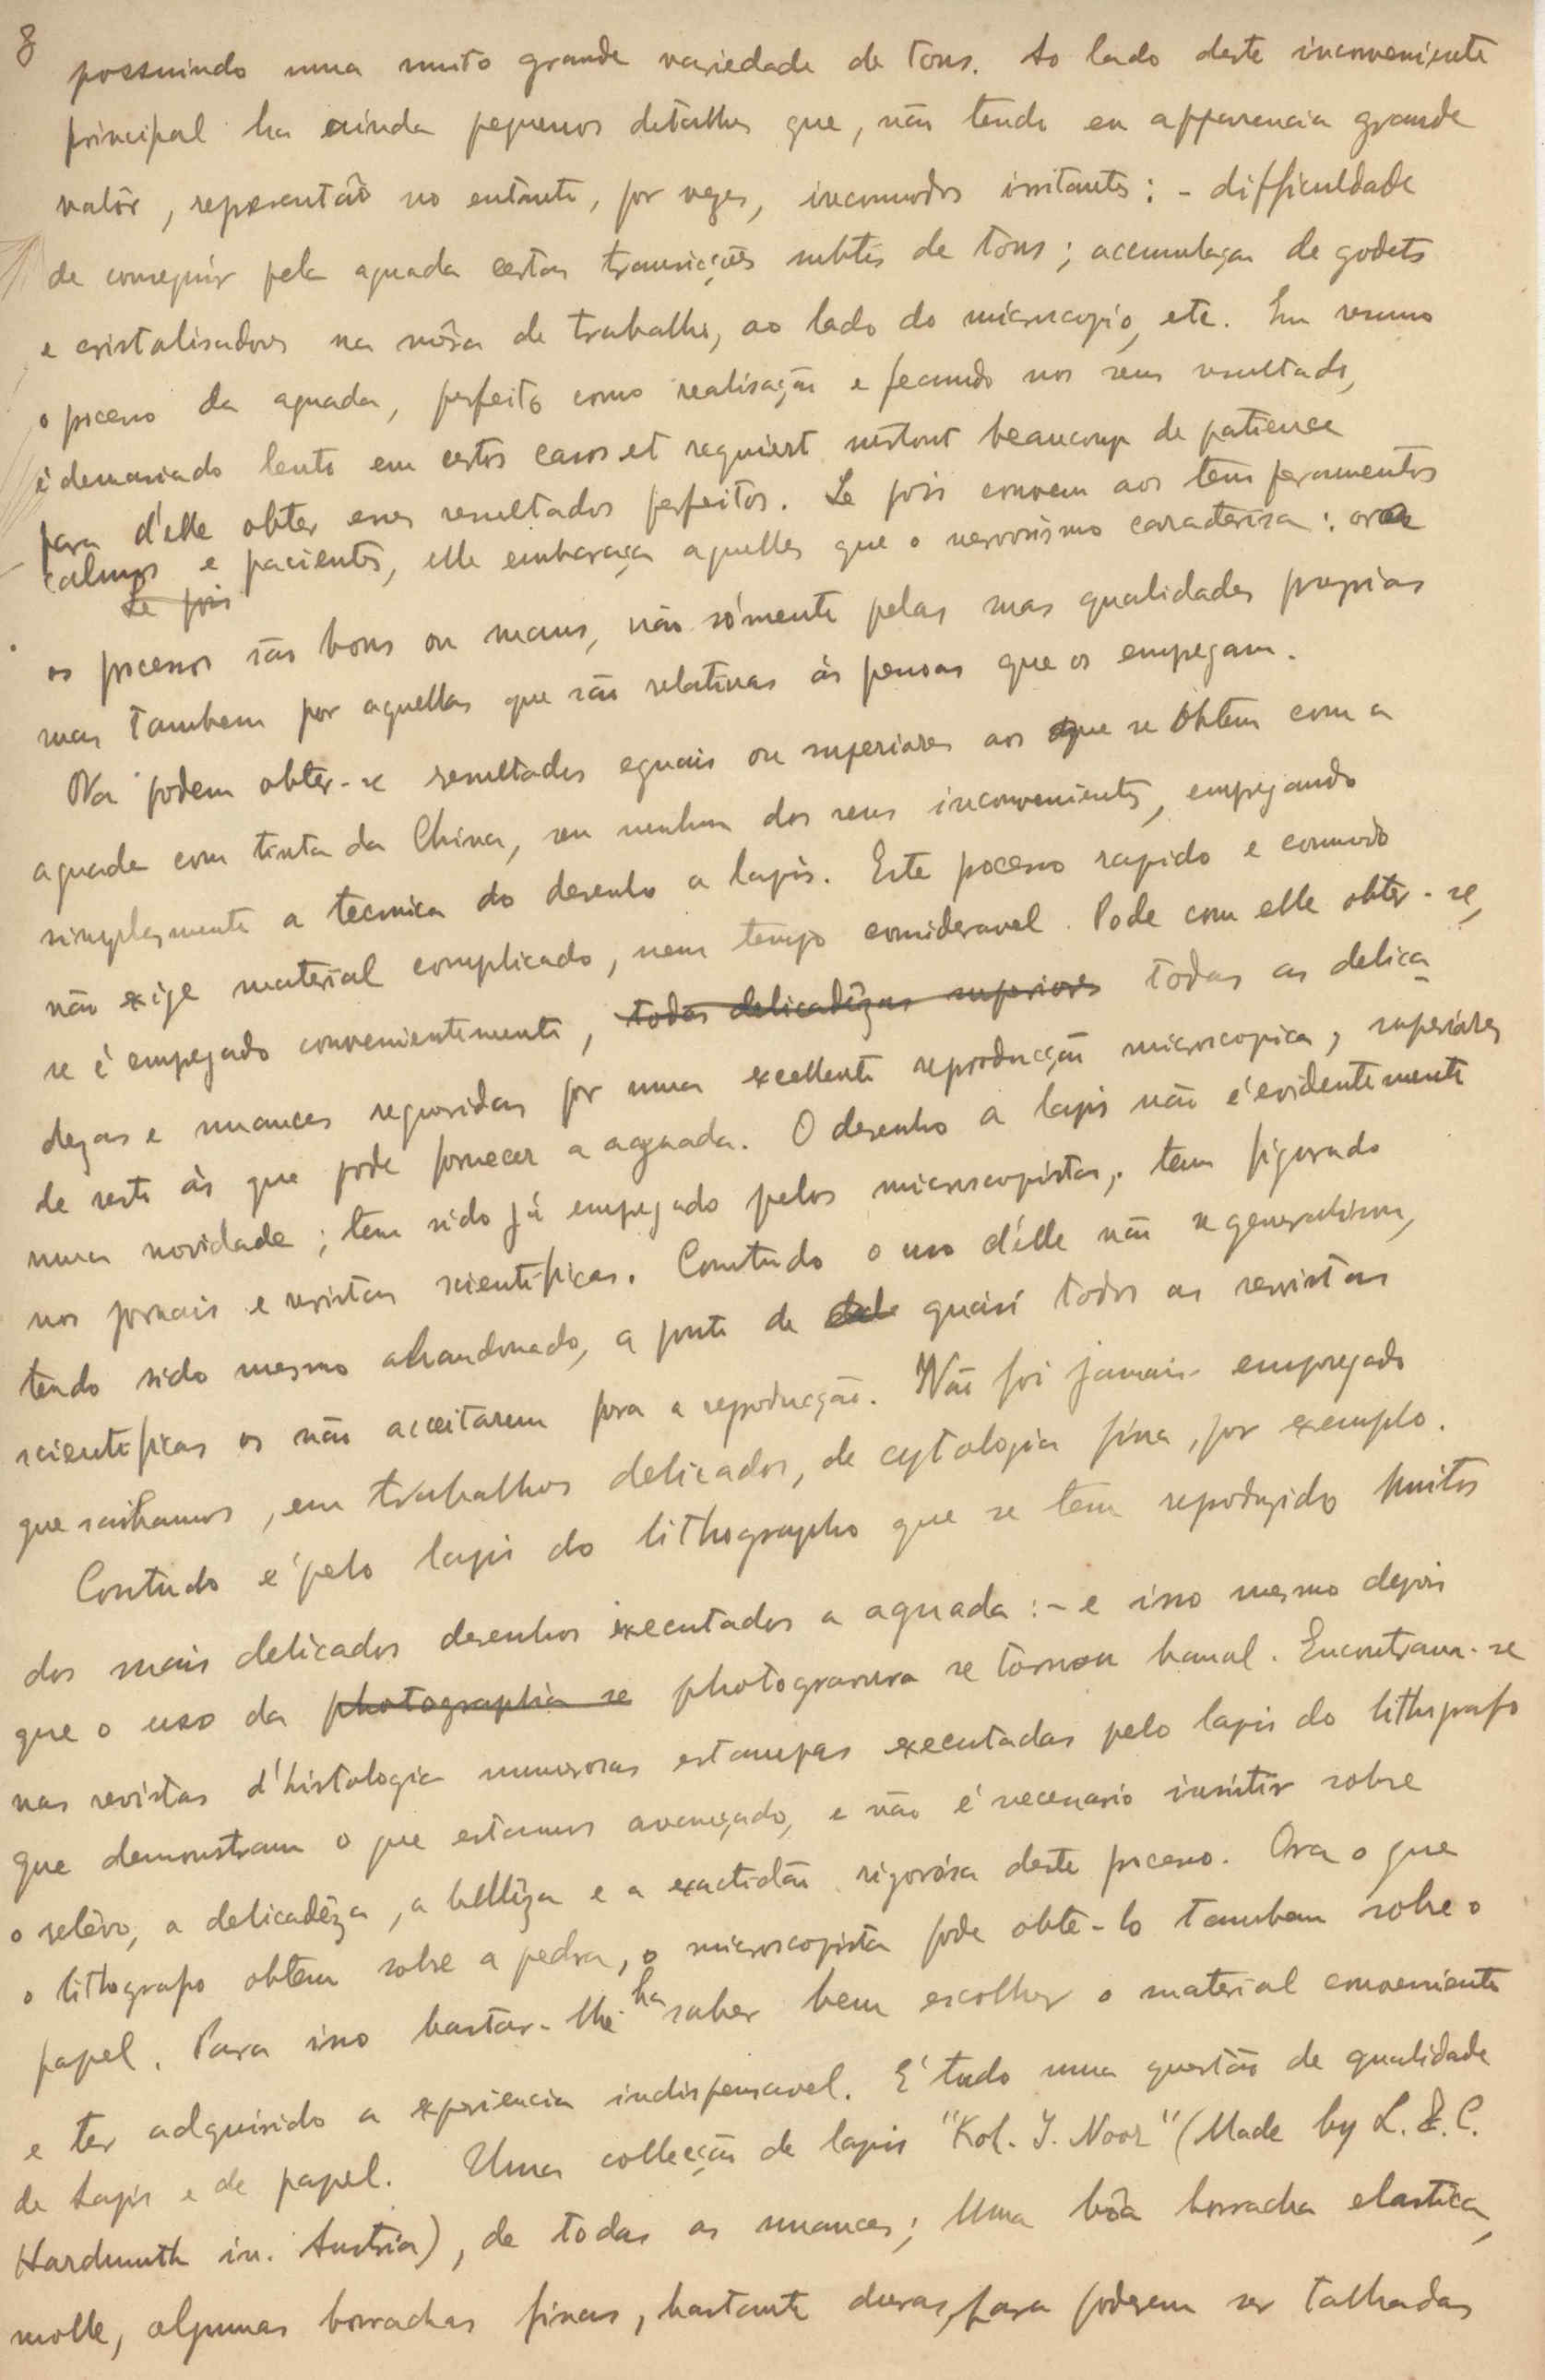 8
possuindo uma muito grande variedade de tons. Ao lado deste inconveniente
principal ha ainda pequenos detalhes que, não tendo en apparencia grande
valôr, representão no entanto, por vezes, incomodos irritantes: - difficuldade
de conseguir pela aguada certas transições subtis de tons; accumulaçao de godets
e cristalisadores na mêsa de trabalho, ao lado do microscopio, etc. Em resumo
o processo da aguada, perfeito como realisação e fecundo nos seus resultados,
é demasiado lento em certos casos et requiert surtout beaucoup de patience
para d'elle obter esses resultados perfeitos. Se pois convem aos temperamentos
calmos e pacientes, elle embaraça aquelles que o nervosismo caracterisa: ora
Se pois
os processos são bons ou maus, não sómente pelas suas qualidades proprias
mas tambem por aquellas que são relativas ás pessoas que os empregam.
Na podem obter-se resultados eguais ou superiores aos que se obtem com a
aguada com tinta da China, sen nenhum dos seus inconvenientes, empregando
simplesmente a tecnica do desenho a lapis. Este processo rapido e commodo
não exige material complicado, nem tempo consideravel. Pode com elle obter-se,
se é empregado convenientemente, todas delicadêzas superiores todas as delica-
dezas e nuances requeridas por uma excellente reproducção microscopica, superiores
de resto ás que pode fornecer a aguada. O desenho a lapis não é evidentemente
uma novidade; tem sido já empregado pelos microscopistas; tem figurado
nos jornais e revistas scientificas. Comtudo o uso d'élle não se generalisou,
tendo sido mesmo abandonado, a ponto de quasi todos as revistas
scientificas os não acceitarem para a reproducção. Não foi jamais empregado
que saibamos, em trabalhos delicados, de cytologia fina, por exemplo.
Contudo é pelo lapis do lithographo que se tem reproduzido muitos
dos mais delicados desenhos executados a aguada: - e isso mesmo depois
que o uso da photographia se photogravura se tornou banal. Encontram-se
nas revistas d'histologia numerosas estampas executadas pelo lapis do lithografo
que demonstram o que estamos avançado, e não é necessario insistir sobre
o relêvo, a delicadêza, a bellêza e a exactidão rigorósa deste processo. Ora o que
o lithografo obtem sobre a pedra, o microscopista pode obte-lo tambem sobre o
papel. Para isso bastar-lhe-ha saber bem escolher o material conveniente
e ter adquirido a experiencia indispensavel. E' tudo uma questão de qualidade
de Lapis e de papel. Uma collecção de lapis "Kol. I. Noor" (Made by L. & C.
Hardmuth in. Austria), de todas as nuances; Uma bôa borracha elastica,
molle, algumas borrachas finas, bastante duras, para poderem ser talhadas